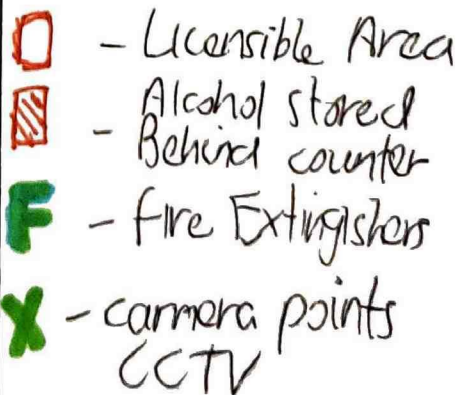 - Licensible Area
Alcohol stored
- Behind counter
F - fire Extingishers
X - camera points
CCTV